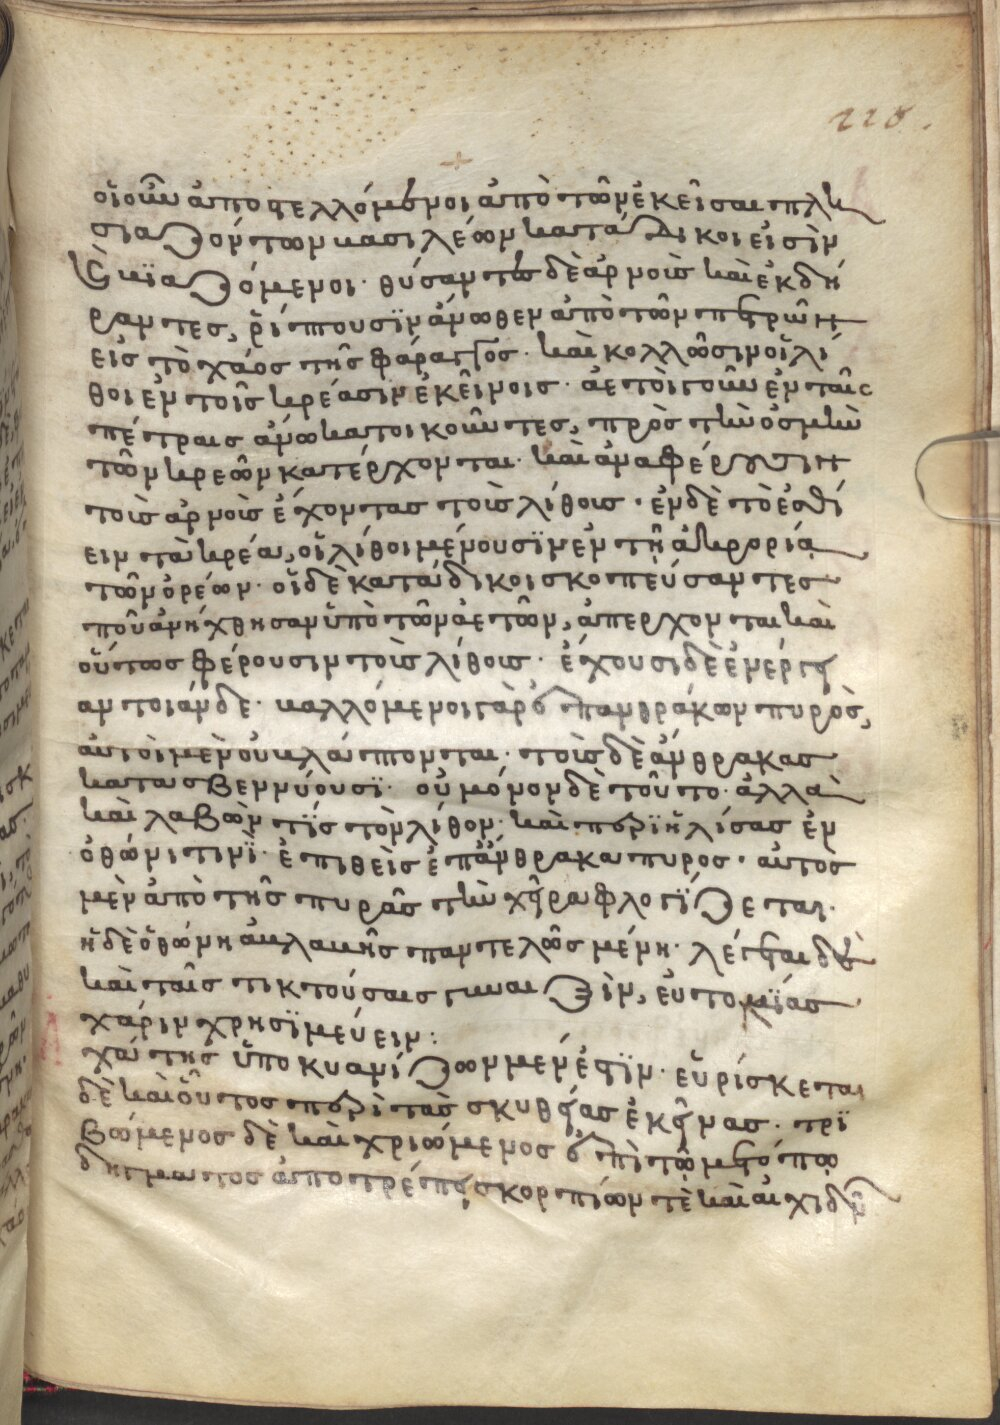 228.
οἱ οὖν ἀποστελλόμενοι ἀπὸ τῶν ἐκεῖσαι πλη
σιαζόντων βασιλέων κατάδικοι εἰσὶν
βϊαζόμενοι· θύσαντες δὲ ἀρνοὺς καὶ ἐκδή
ραντες, ῥίπτουσϊν ἄνωθεν ἀπὸ τῶν πετρῶν
εἰς τὸ χάος τῆς φάραγγος· καὶ κολλῶσιν οἱ λί
θοι ἐν τοῖς κρέασιν ἐκεῖνοις· ἀετοὶ γοῦν ἐν ταῖς
πέτραις ἄνω κατοικοῦντες, πρὸς τὴν ὀσμὴν
τῶν κρεῶν κατέρχονται· καὶ ἀναφέρουσιν
τοὺς ἀρνοὺς ἔχοντας τοὺς λίθους· ἐν δὲ τὸ ἐσθί
ειν τὰ κρέα, οἱ λίθοι μένουσϊν ἐν τῇ ἀκρορίᾳ
τῶν ὀρέων· οἱ δὲ κατάδικοι σκοπεύσαντες
ποῦ ἀνήχθησαν ὑπὸ τῶν ἀετῶν, ἀπερχονται καὶ
οὕτως φέρουσιν τοὺς λίθους· ἔχουσι δὲ ἐνέργει
αν τοιάνδε· βαλλόμενοι γὰρ ἐπανθράκων πυρὸς,
αὐτοὶ μὲν οὐ βλάπτονται· τοὺς δὲ ἄνθρακας
κατασβεννύουσϊ· οὐ μόνον δὲ τοῦτο· ἀλλὰ
καὶ λαβὼν τϊς τὸν λίθον· καὶ περϊηλίσας ἐν
ὀθώνι τινϊ· ἐπιθεὶς ἐπἄνθρακα πυρος· αὐτος
μὲν ἀπὸ τῆς πυρᾶς τὴν χεῖρα φλογϊζεται·
ἡ δὲ ὀθώνη ἀβλαβῆς παντελῶς μένη· λέγεται δὲ
καὶ ταῖς τικτούσαις γυναιξὶν, εὐτοκϊας
χάριν χρησϊμεύειν:
χάτης ὑποκυανίζων μέν ἐστϊν· εὑρίσκεται
δὲ καὶ οὗτος περὶ τὰς σκυθείας ἐκεῖνας· τρϊ
βώμενος δὲ καὶ χριώμενος ἐπὶ τῶν τόπω
δήγματος ἀποτρέπει σκορπίων τὲ καὶ ἀιχιδνῶν